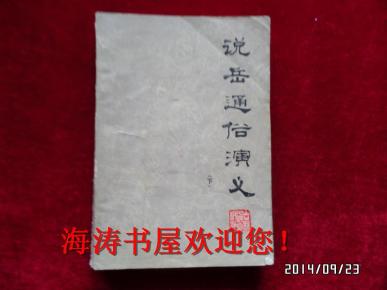 说岳通俗演义
下
海涛书屋欢迎您！
2014/09/23